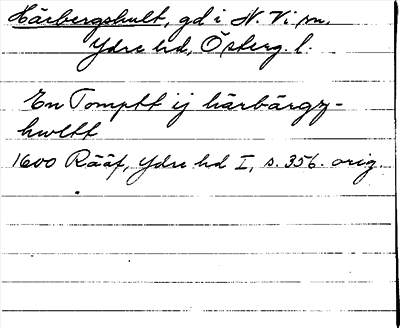 Härbergshult, gd i N. Vi sn,
Ydre hd, Österg. l.
En Tomptt ij härbärgz-
hwltt
1600 Rääf, Ydre hd I, s. 356. orig.